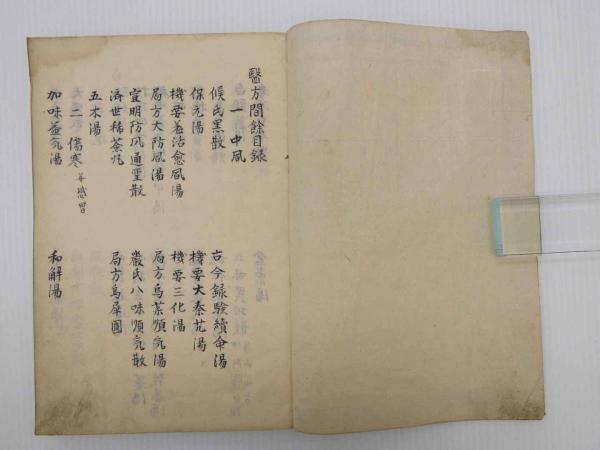 醫方間餘目録
一 中風
候氏黒散
古今録驗續命湯
保元湯
機要大秦芃湯
機要羗活愈風湯
機要三化湯
局方大防風湯
局方烏薬順氣湯
宣明防风通聖散
嚴氏八味順氣散
済世稀薟丸
局方烏犀圓
五木湯
二 傷寒 并感冒
加味益気湯
和解湯